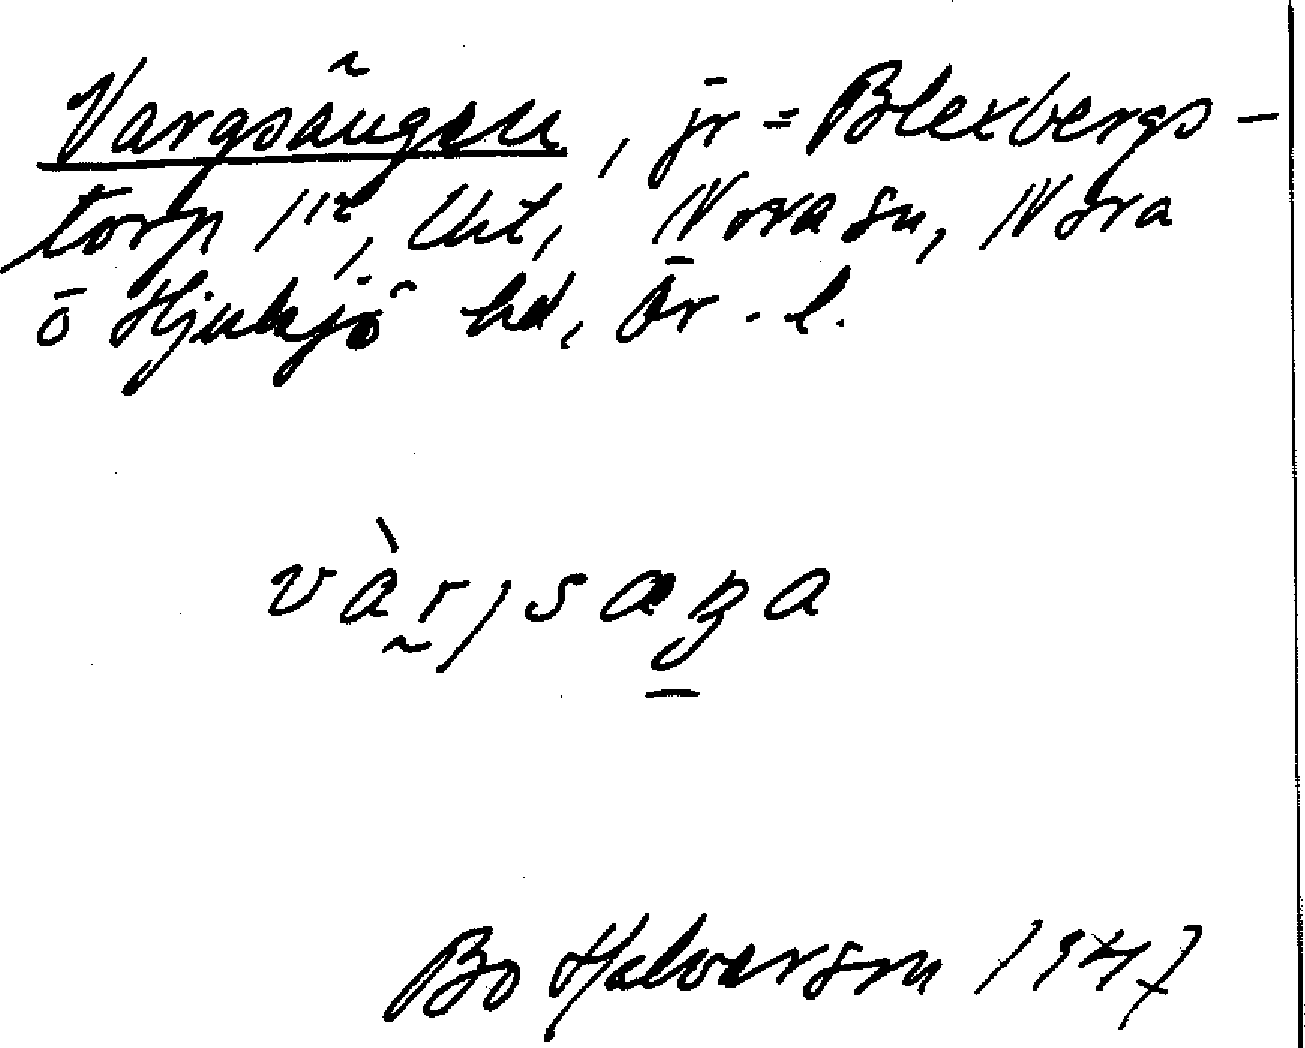 Vargsängen, jr = Blexbergs-
torp 1¹², Urt, Nora sn, Nora
o Hjulsjö hd, Ör. l.
Bo Halvarson 1947